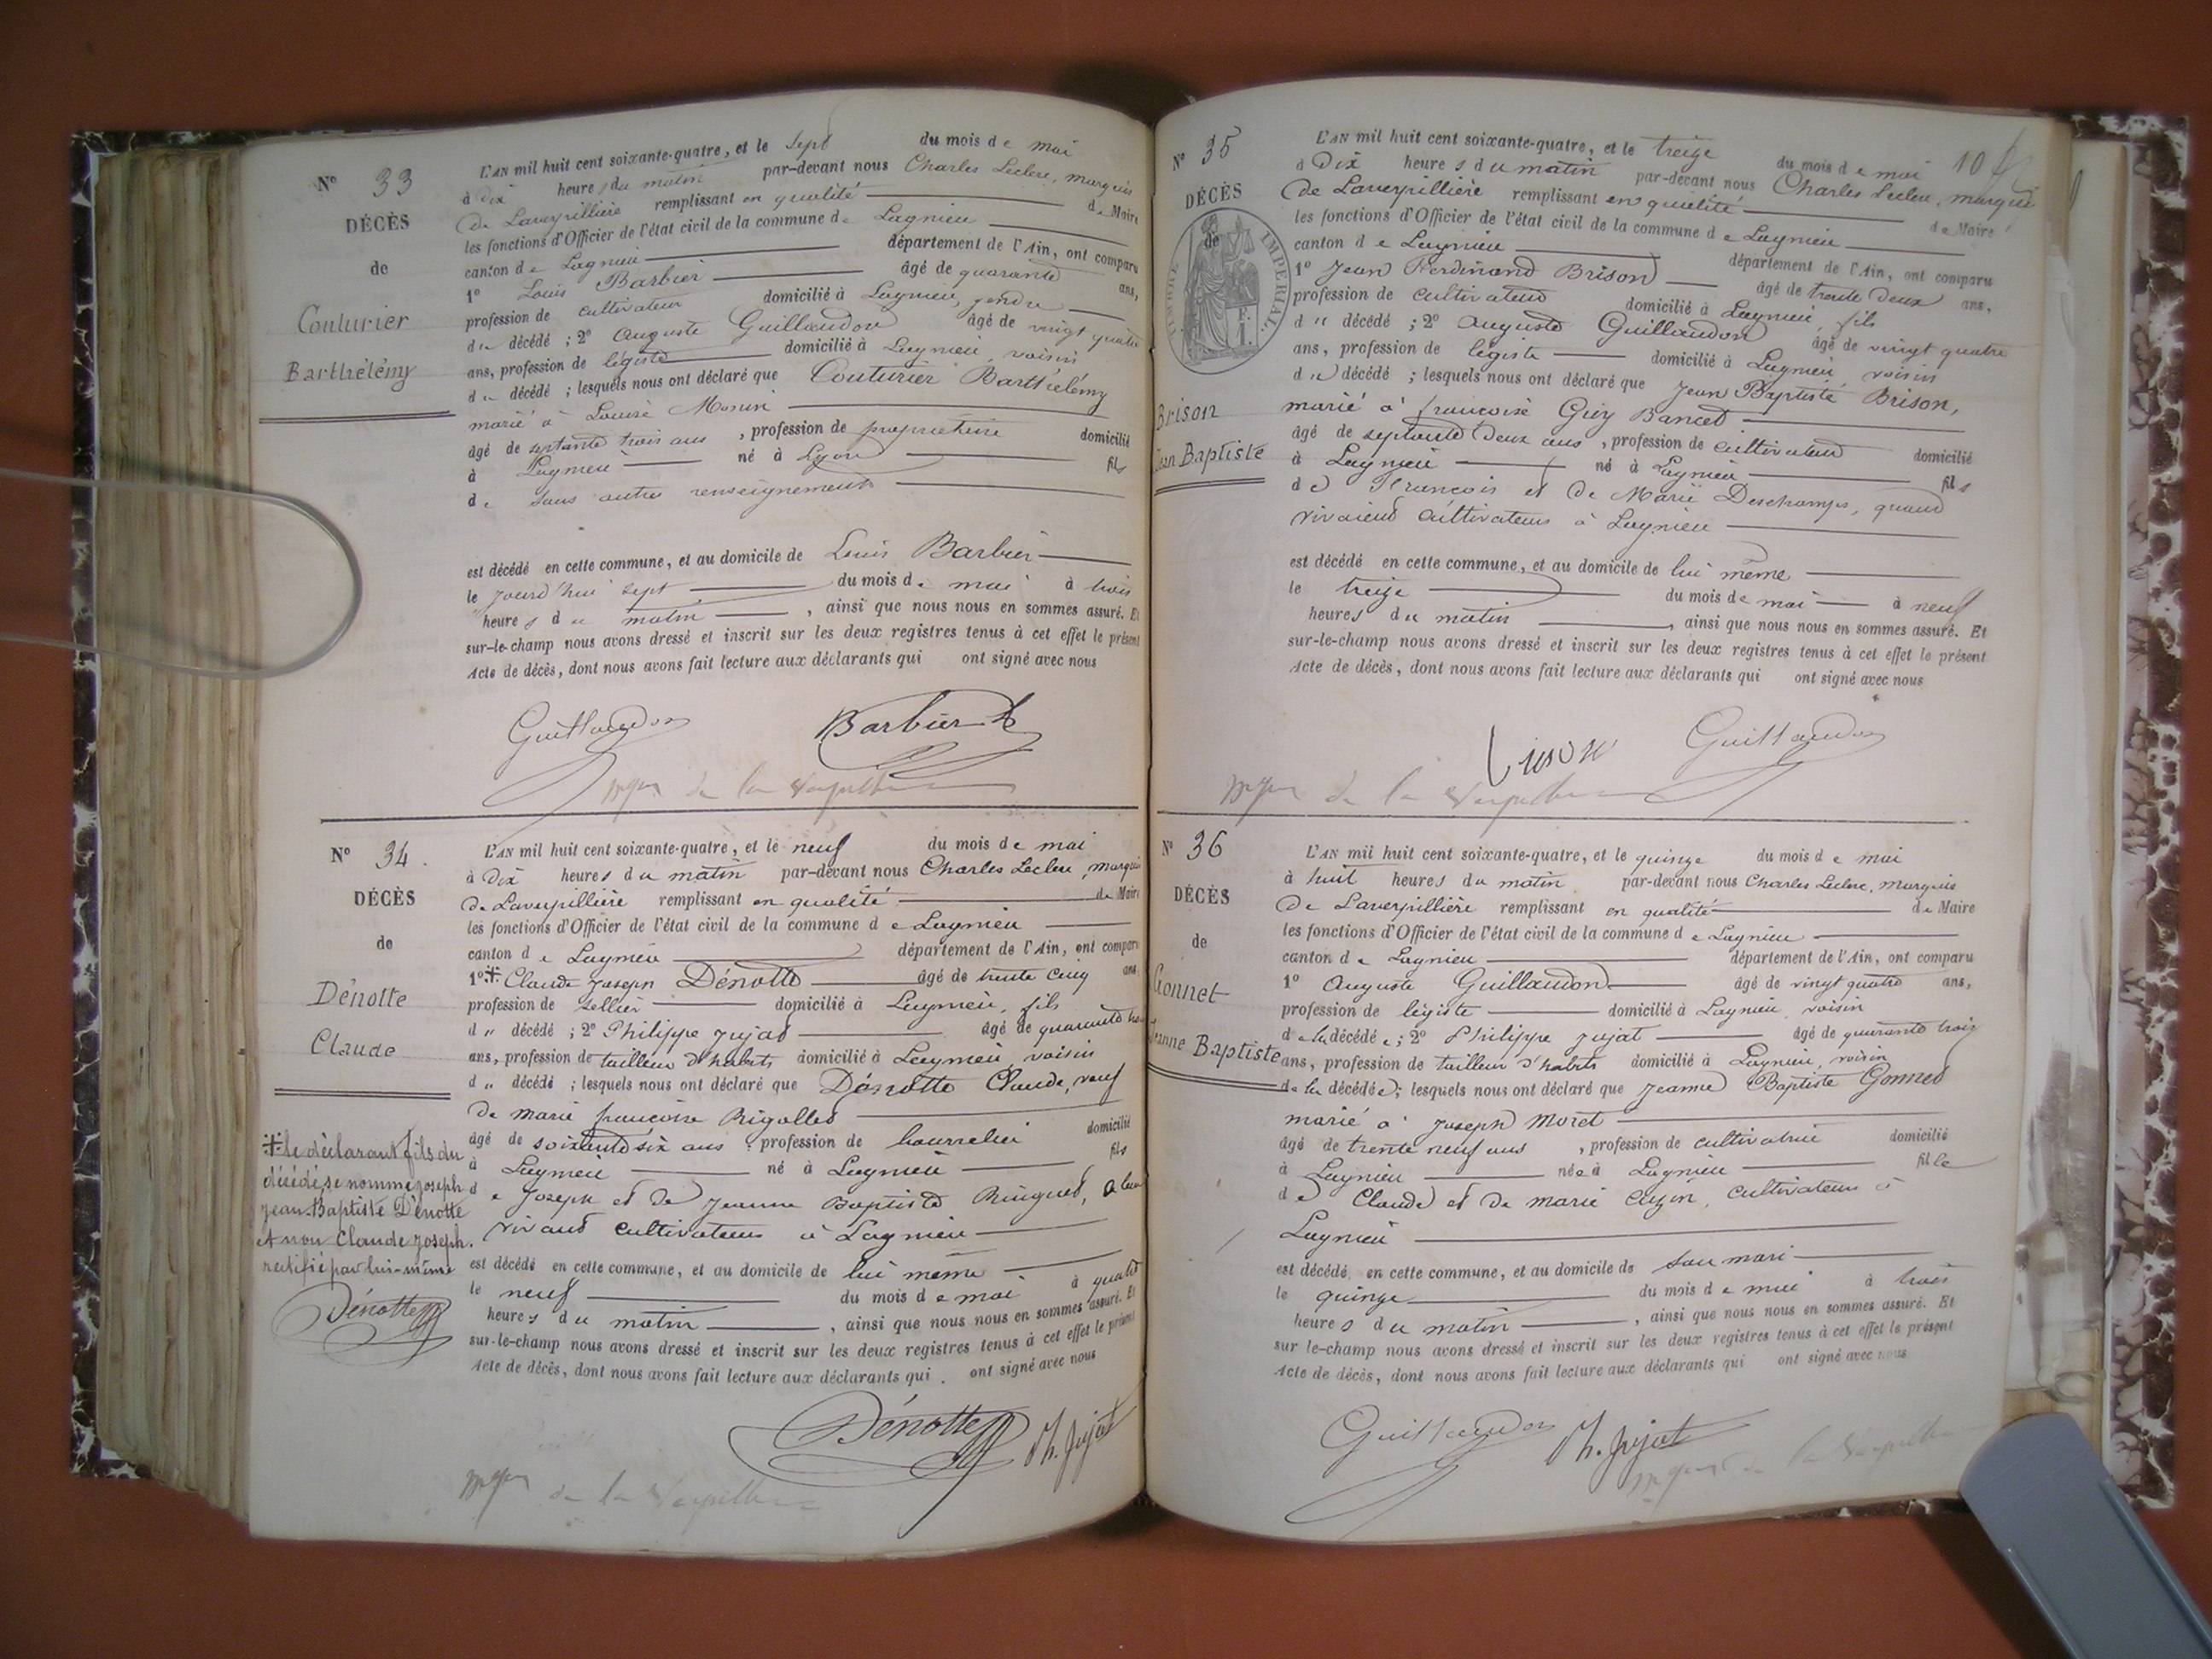 N° 33
DÉCÈS
de
Couturier
Barthélémy
L'AN mil huit cent soixante-quatre, et le sept du mois de mai
à dix heures du matin par-devant nous Charles Leclerc, marquis
de Laverpillière remplissant en qualité de Maire
les fonctions d'Officier de l'état civil de la commune de Lagnieu
canton de Lagnieu département de l'Ain, ont comparu
1° Louis Barbier âgé de quarante ans,
profession de cultivateur domicilié à Lagnieu, gendre
du décédé ; 2° Auguste Guillaudon âgé de vingt quatre
ans, profession de légiste domicilié à Lagnieu, voisin
du décédé ; lesquels nous ont déclaré que Couturier Barthélémy
marié à Louise Monin
âgé de septante trois ans, profession de propriétaire domicilié
à Lagnieu né à Lyon fils
de sans autres renseignements
est décédé en cette commune, et au domicile de Louis Barbier
le jourd'hui sept du mois de mai à trois
heures du matin, ainsi que nous nous en sommes assuré. Et
sur-le-champ nous avons dressé et inscrit sur les deux registres tenus à cet effet le présent
Acte de décès, dont nous avons fait lecture aux déclarants qui ont signé avec nous
Guillaudon Barbier
de la Verpillière
N° 34.
DÉCÈS
de
Dénotte
Claude
L'AN mil huit cent soixante-quatre, et le neuf du mois de mai
à dix heures du matin par-devant nous Charles Leclerc, marquis
de Laverpillière remplissant en qualité de Maire
les fonctions d'Officier de l'état civil de la commune de Lagnieu
canton de Lagnieu département de l'Ain, ont comparu
1° * Claude Joseph Dénotte âgé de trente cinq ans
profession de sellier domicilié à Lagnieu, fils
du décédé ; 2° Philippe Jujat âgé de quarante trois
ans, profession de tailleur d'habits domicilié à Lagnieu, voisin
du décédé ; lesquels nous ont déclaré que Dénotte Claude, veuf
de marie françoise Rigollet
âgé de soixante six ans, profession de bourrelier domicilié
à Lagnieu né à Lagnieu fils
de Joseph et de Jeanne Baptiste Ringuet, à leur
vivant cultivateurs à Lagnieu
est décédé en cette commune, et au domicile de lui même
le neuf du mois de mai à quatre
heures du matin, ainsi que nous nous en sommes assuré. Et
sur-le-champ nous avons dressé et inscrit sur les deux registres tenus à cet effet le présent
Acte de décès, dont nous avons fait lecture aux déclarants qui ont signé avec nous
* le déclarant fils du
décédé, se nomme joseph
jean Baptiste Dénotte
et non Claude joseph.
rectifié par lui-même
Dénotte
Dénotte Ph. Jujat
de la Verpillière
104
N° 35
DÉCÈS
de
TIMBRE IMPÉRIAL
Brison
Jean Baptiste
L'AN mil huit cent soixante-quatre, et le treize du mois de mai
à Dix heures du matin par-devant nous Charles Leclerc, marquis
de Laverpillière remplissant en qualité de Maire
les fonctions d'Officier de l'état civil de la commune de Lagnieu
canton de Lagnieu département de l'Ain, ont comparu
1° Jean Ferdinand Brison âgé de trente deux ans,
profession de cultivateur domicilié à Lagnieu, fils
du décédé ; 2° Auguste Guillaudon âgé de vingt quatre
ans, profession de légiste domicilié à Lagnieu voisin
du décédé ; lesquels nous ont déclaré que Jean Baptiste Brison,
marié à françoise Guy Bancet
âgé de septante deux ans, profession de cultivateur domicilié
à Lagnieu né à Lagnieu fils
de François et de Marie Deschamps, quand
vivaient cultivateurs à Lagnieu
est décédé en cette commune, et au domicile de lui même
le treize du mois de mai à neuf
heures du matin, ainsi que nous nous en sommes assuré. Et
sur-le-champ nous avons dressé et inscrit sur les deux registres tenus à cet effet le présent
Acte de décès, dont nous avons fait lecture aux déclarants qui ont signé avec nous
Guillaudon
de la Verpillière
N° 36
DÉCÈS
de
Gonnet
Jeanne Baptiste
L'AN mil huit cent soixante-quatre, et le quinze du mois de mai
à huit heures du matin par-devant nous Charles Leclerc, marquis
de Laverpillière remplissant en qualité de Maire
les fonctions d'Officier de l'état civil de la commune de Lagnieu
canton de Lagnieu département de l'Ain, ont comparu
1° Auguste Guillaudon âgé de vingt quatre ans,
profession de légiste domicilié à Lagnieu, voisin
de la décédée ; 2° Philippe Jujat âgé de quarante trois
ans, profession de tailleur d'habits domicilié à Lagnieu, voisin
de la décédée ; lesquels nous ont déclaré que Jeanne Baptiste Gonnet
marié à Joseph Moret
âgé de trente neuf ans, profession de cultivatrice domicilié
à Lagnieu née à Lagnieu fille
de Claude et de marie Cuzin, cultivateurs à
Lagnieu
est décédé en cette commune, et au domicile de son mari
le quinze du mois de mai à trois
heures du matin, ainsi que nous nous en sommes assuré. Et
sur le-champ nous avons dressé et inscrit sur les deux registres tenus à cet effet le présent
Acte de décès, dont nous avons fait lecture aux déclarants qui ont signé avec nous
Guillaudon Ph. Jujat
de la Verpillière